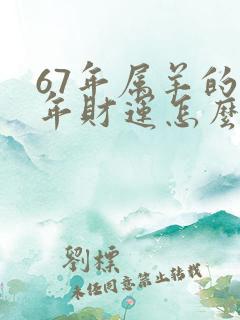 67年属羊的
年财运怎麽
刘标
未经同意禁止转载